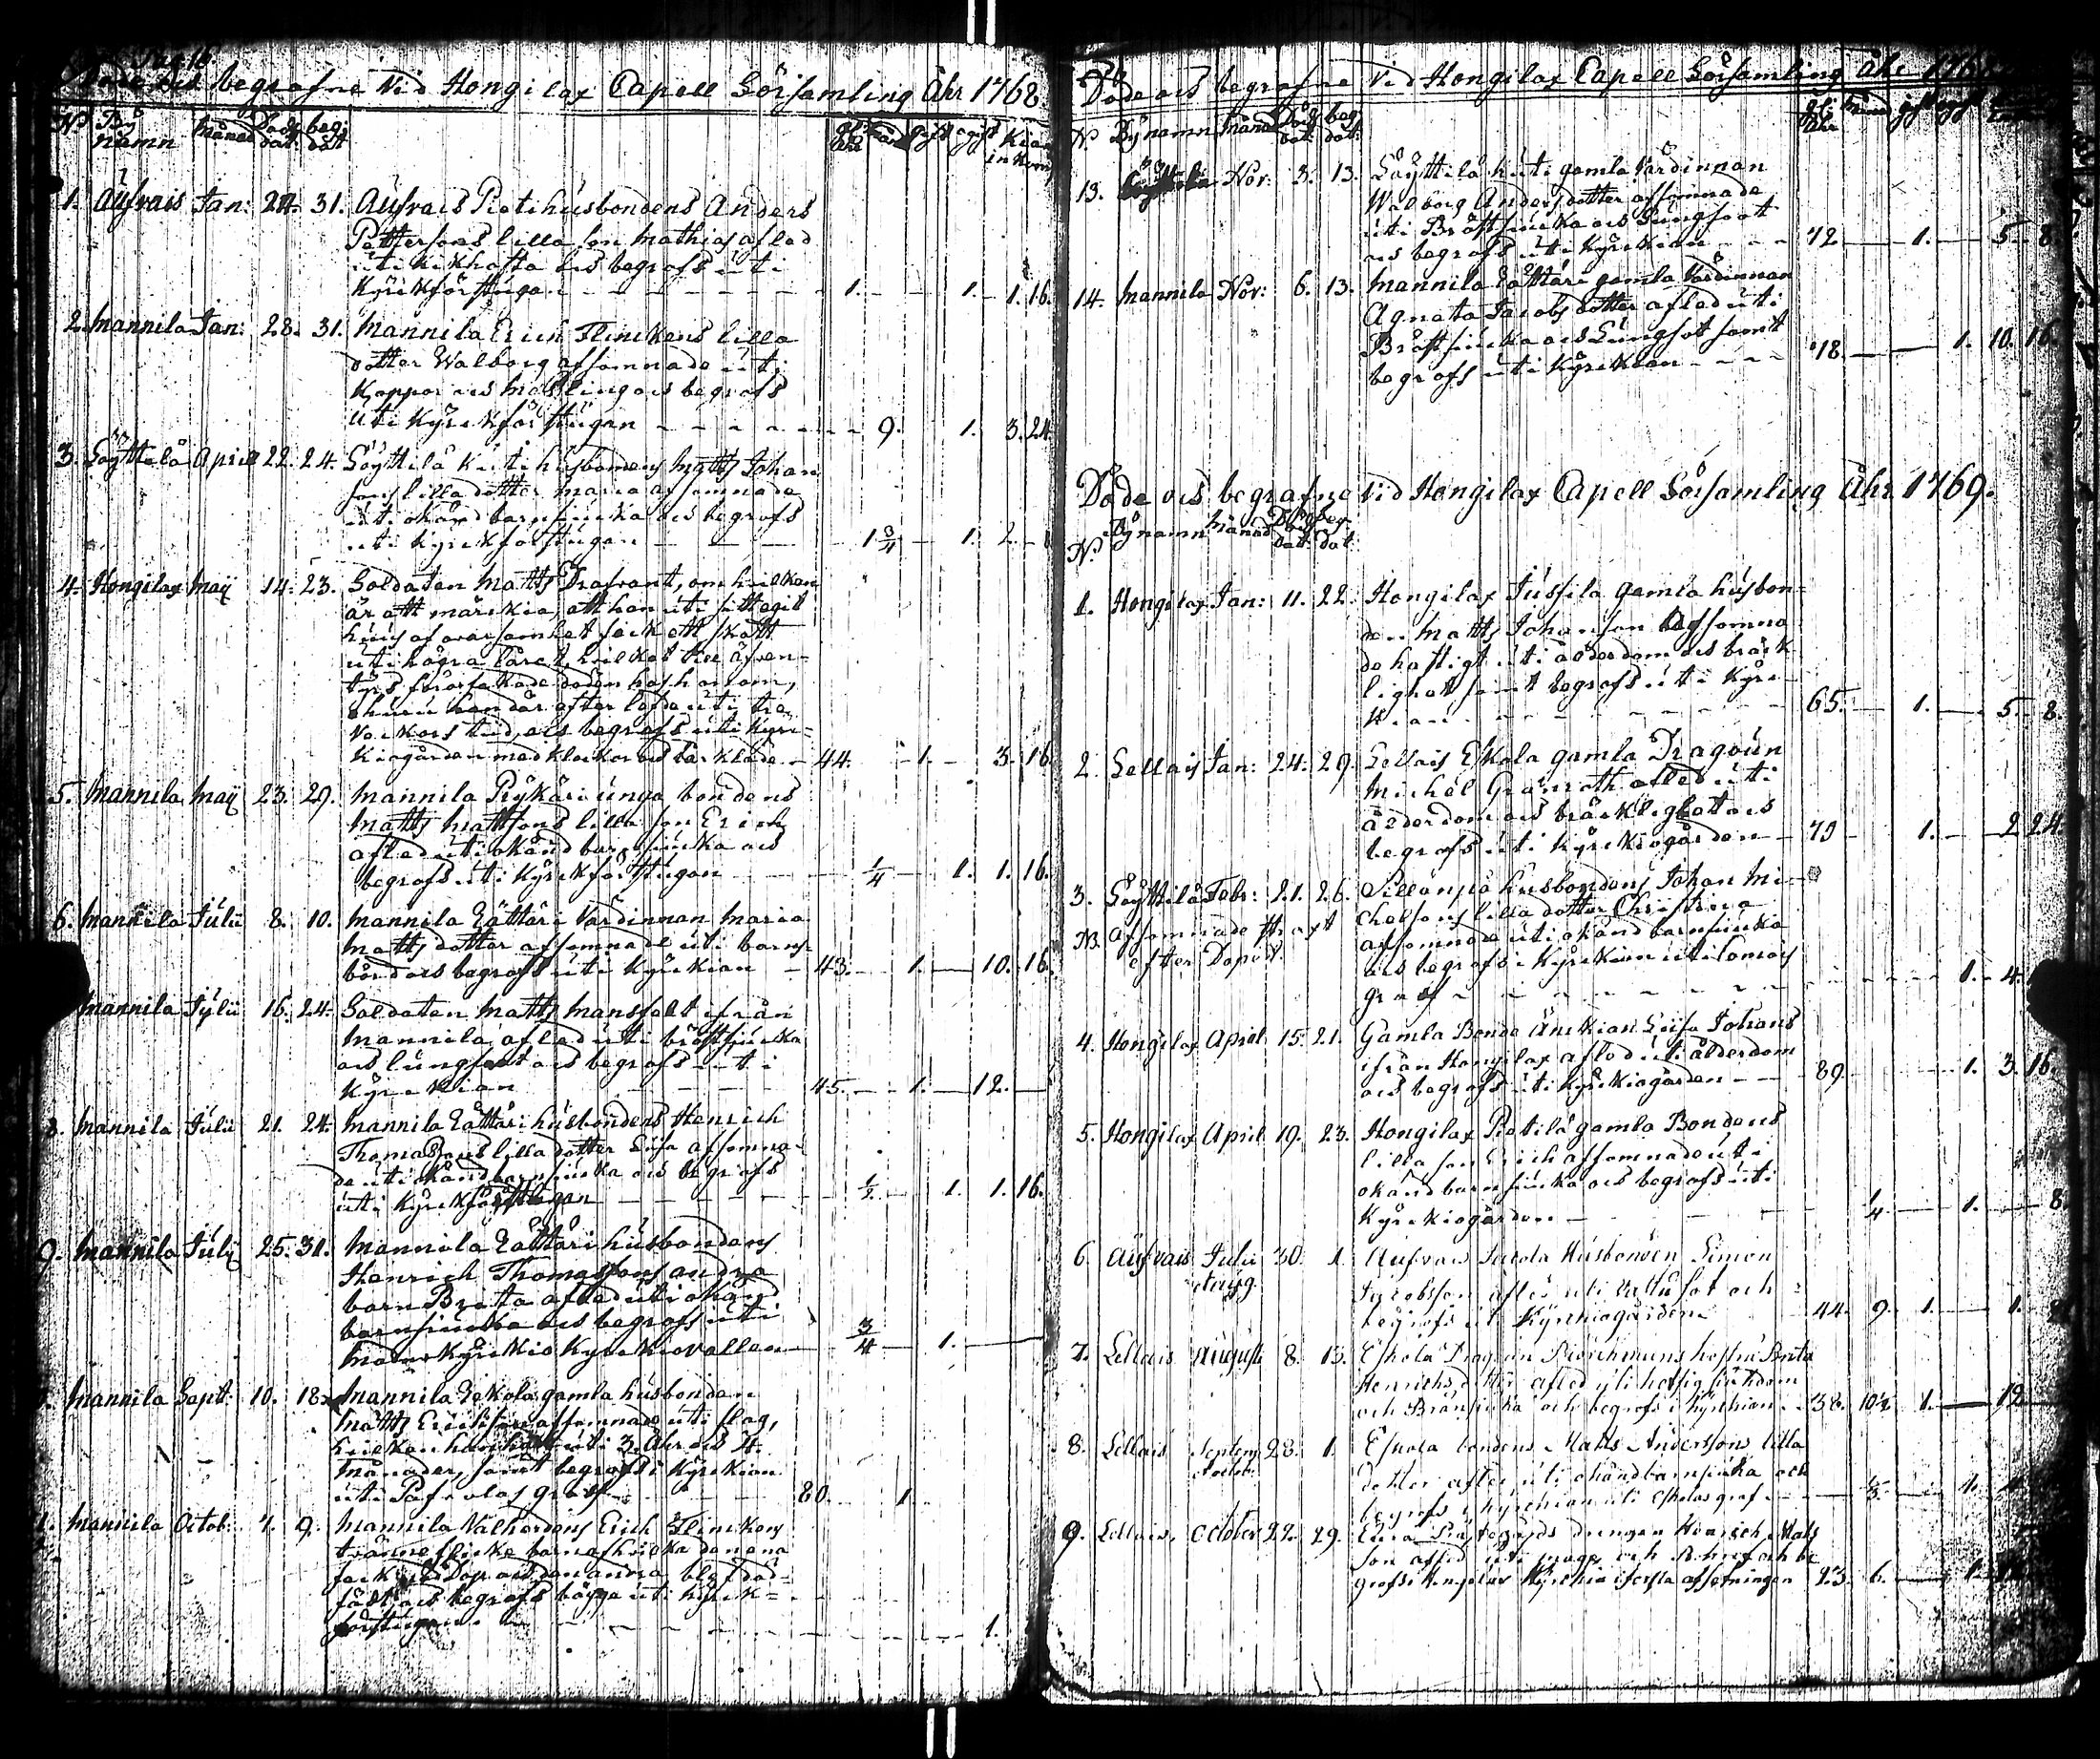 Döde och begrafne Vid Hongilax Capell Församling Åhr 1768
N. By namn Månad Döds dat: beg: dat
1. Aufvais Jan: 24. 31. Aufvais Pieti husbondens Anders
Pettersons lilla son Mathias afled
uti kikhosta och begrofs uti
Kyrckförstugan 1. 1. 1. 16.
2. Mannila Jan: 28. 31. Mannila Erich Flinckens lilla
dotter Walborg afsomnade uti
Koppor och Mässling och begrofs
uti Kyrckförstugan 9. 1. 3. 24.
3. Säyttilä April 22. 24. Säyttilä Kuti husbondens Matts Johan
sons lilla dotter Maria afsomnade
uti okänd barnsiucka och begrofs
uti Kyrckförstugan 1 3/4 1. 2.
4. Hongilax Maij 14. 23. Soldaten Matts Trafvant, om hvilken
är att märckia, att han uti sitt egit
huus af ovarsamhet feck ett skott
uti högra låret, hvilket till äfven-
tyrs förorsakade döden hos honom,
ehuru han där efter lefde uti tre
veckors tid, och begrofs uti Kyrc-
kiogården med klockor och bårkläde 44. 1. 3. 16
5. Mannila Maij 23. 29. Mannila Prykäri unga bondens
Matts Mattsons lilla son Erich
afled uti okänd barnsiucka och
begrofs uti Kyrckförstugan 1/4 1. 1. 16.
6. Mannila Julii 8. 10. Mannila Lättäri Värdinnan Maria
Matts dotter afsomnade uti barns-
börd och begrofs uti Kyrckian 43. 1. 10. 16.
Mannila Julii 16. 24. Soldaten Matts Mansfelt ifrån
Mannila, afled uti bröstsiucka
och lungsoot och begrofs uti
Kyrckian 45. 1. 12.
8. Mannila Julii 21. 24. Mannila Lättäri husbondens Henrich
Thomassons lilla dotter Lisa afsomna-
de uti okänd barnsiucka och begrofs
uti Kyrckförstugan 1/2 1. 1. 16.
9. Mannila Julij 25. 31. Mannila Lättäri husbondens
Henrich Thomassons andra
barn Brita afled uti okänd
barnsiucka och begrofs uti
Moder Kyrckio Kyrckiovallen 3/4 1.
Mannila Sept: 10. 18. Mannila Eskola gamla husbonden
Matts Erichson afsomnade uti slag,
hvilken han haft uti 3. Åhr och 4.
Månader, samt begrofs i Kyrckian
uti graf 80. 1.
Mannila Octob: 7. 9. Mannila Erich Flinckens
tvänne flicke barn af hvilka den ena
feck Dop och den andra blef död-
född och begrofs bägge uti Kyrck-
förstugan 1.
Döde och begrafne Vid Hongilax Capell Församling Åhr 1768
N. Bynamn Månad Döds dat: beg dat:
13. Säyttilä Nov: 3. 13. Säyttilä Kuti gamla Värdinnan
Walborg Anders dotter afsomnade
uti Bröstsiucka och Lungsoot
och begrofs uti Kyrckian 72. 1. 5. 8.
14. Mannila Nov: 6. 13. Mannila Lättäri gamla Värdinnan
Agneta Jacobs dotter afled uti
Bröstsiucka och Lungsot samt
begrofs uti Kyrckian 78. 1. 10. 16.
Döde och begrafne Vid Hongilax Capell Församling Åhr 1769.
N. Bynamn Månad Döds dat: beg: dat:
1. Hongilax Jan: 11. 22. Hongilax Jussila gamla husbon-
den Matts Johanson afsomna-
de hastigt uti ålderdom och bräck-
lighet samt begrofs uti Kyrc-
kian 65. 1. 5. 8.
2. Lellais Jan: 24. 29. Lellais Eskola gamla Dragoun
Michel Granroth afled uti
ålderdom och bräcklighet och
begrofs uti Kyrckiogården 79 1. 2 24.
3. Säyttilä Febr: 21. 26. Sillanpä husbondens Johan Mi-
chelsons lilla dotter Christina
NB. afsomnade straxt afsomnade uti okänd barnsiucka
efter Dopet. och begrofs i Kyrckian uti
graf 1. 4.
4. Hongilax April 15. 21. Gamla Bonde Änckian Lisa Johans
ifrån Hongilax afled uti ålderdom
och begrofs uti Kyrckiogården 89. 1. 3. 16.
5. Hongilax April 19. 23. Hongilax Pietilä gamla Bondens
lilla son Erich afsomnade uti
okänd barnsiucka och begrofs uti
Kyrckiogården 1/4 1. 8
6. Aufvais Julii 30. 1. Aufvais husbonden Simon
et Aug. Jacobsson afled uti och
begrofs i Kyrckiogården 44. 9. 1. 1. 8
7. Lellais Augusti 8. 13. Eskola Dragoun hustru Brita
Henrichs dotter afled uti hetsig siukdom
och Bränsiuka och begrofs i Kyrckian 38. 10 1/2 1. 12
8. Lellais Septem 28. 1. Eskola bondens Matts Anderssons lilla
et octob. dotter afled uti okänd barnsiucka och
begrofs i Kyrckian uti Eskolas graf 1.
9. Lellais, October 22. 29. drengen Henrich Mats
son afled uti och be
grofs i Hongilax Kyrckia i första afsetningen 23. 6. 1.